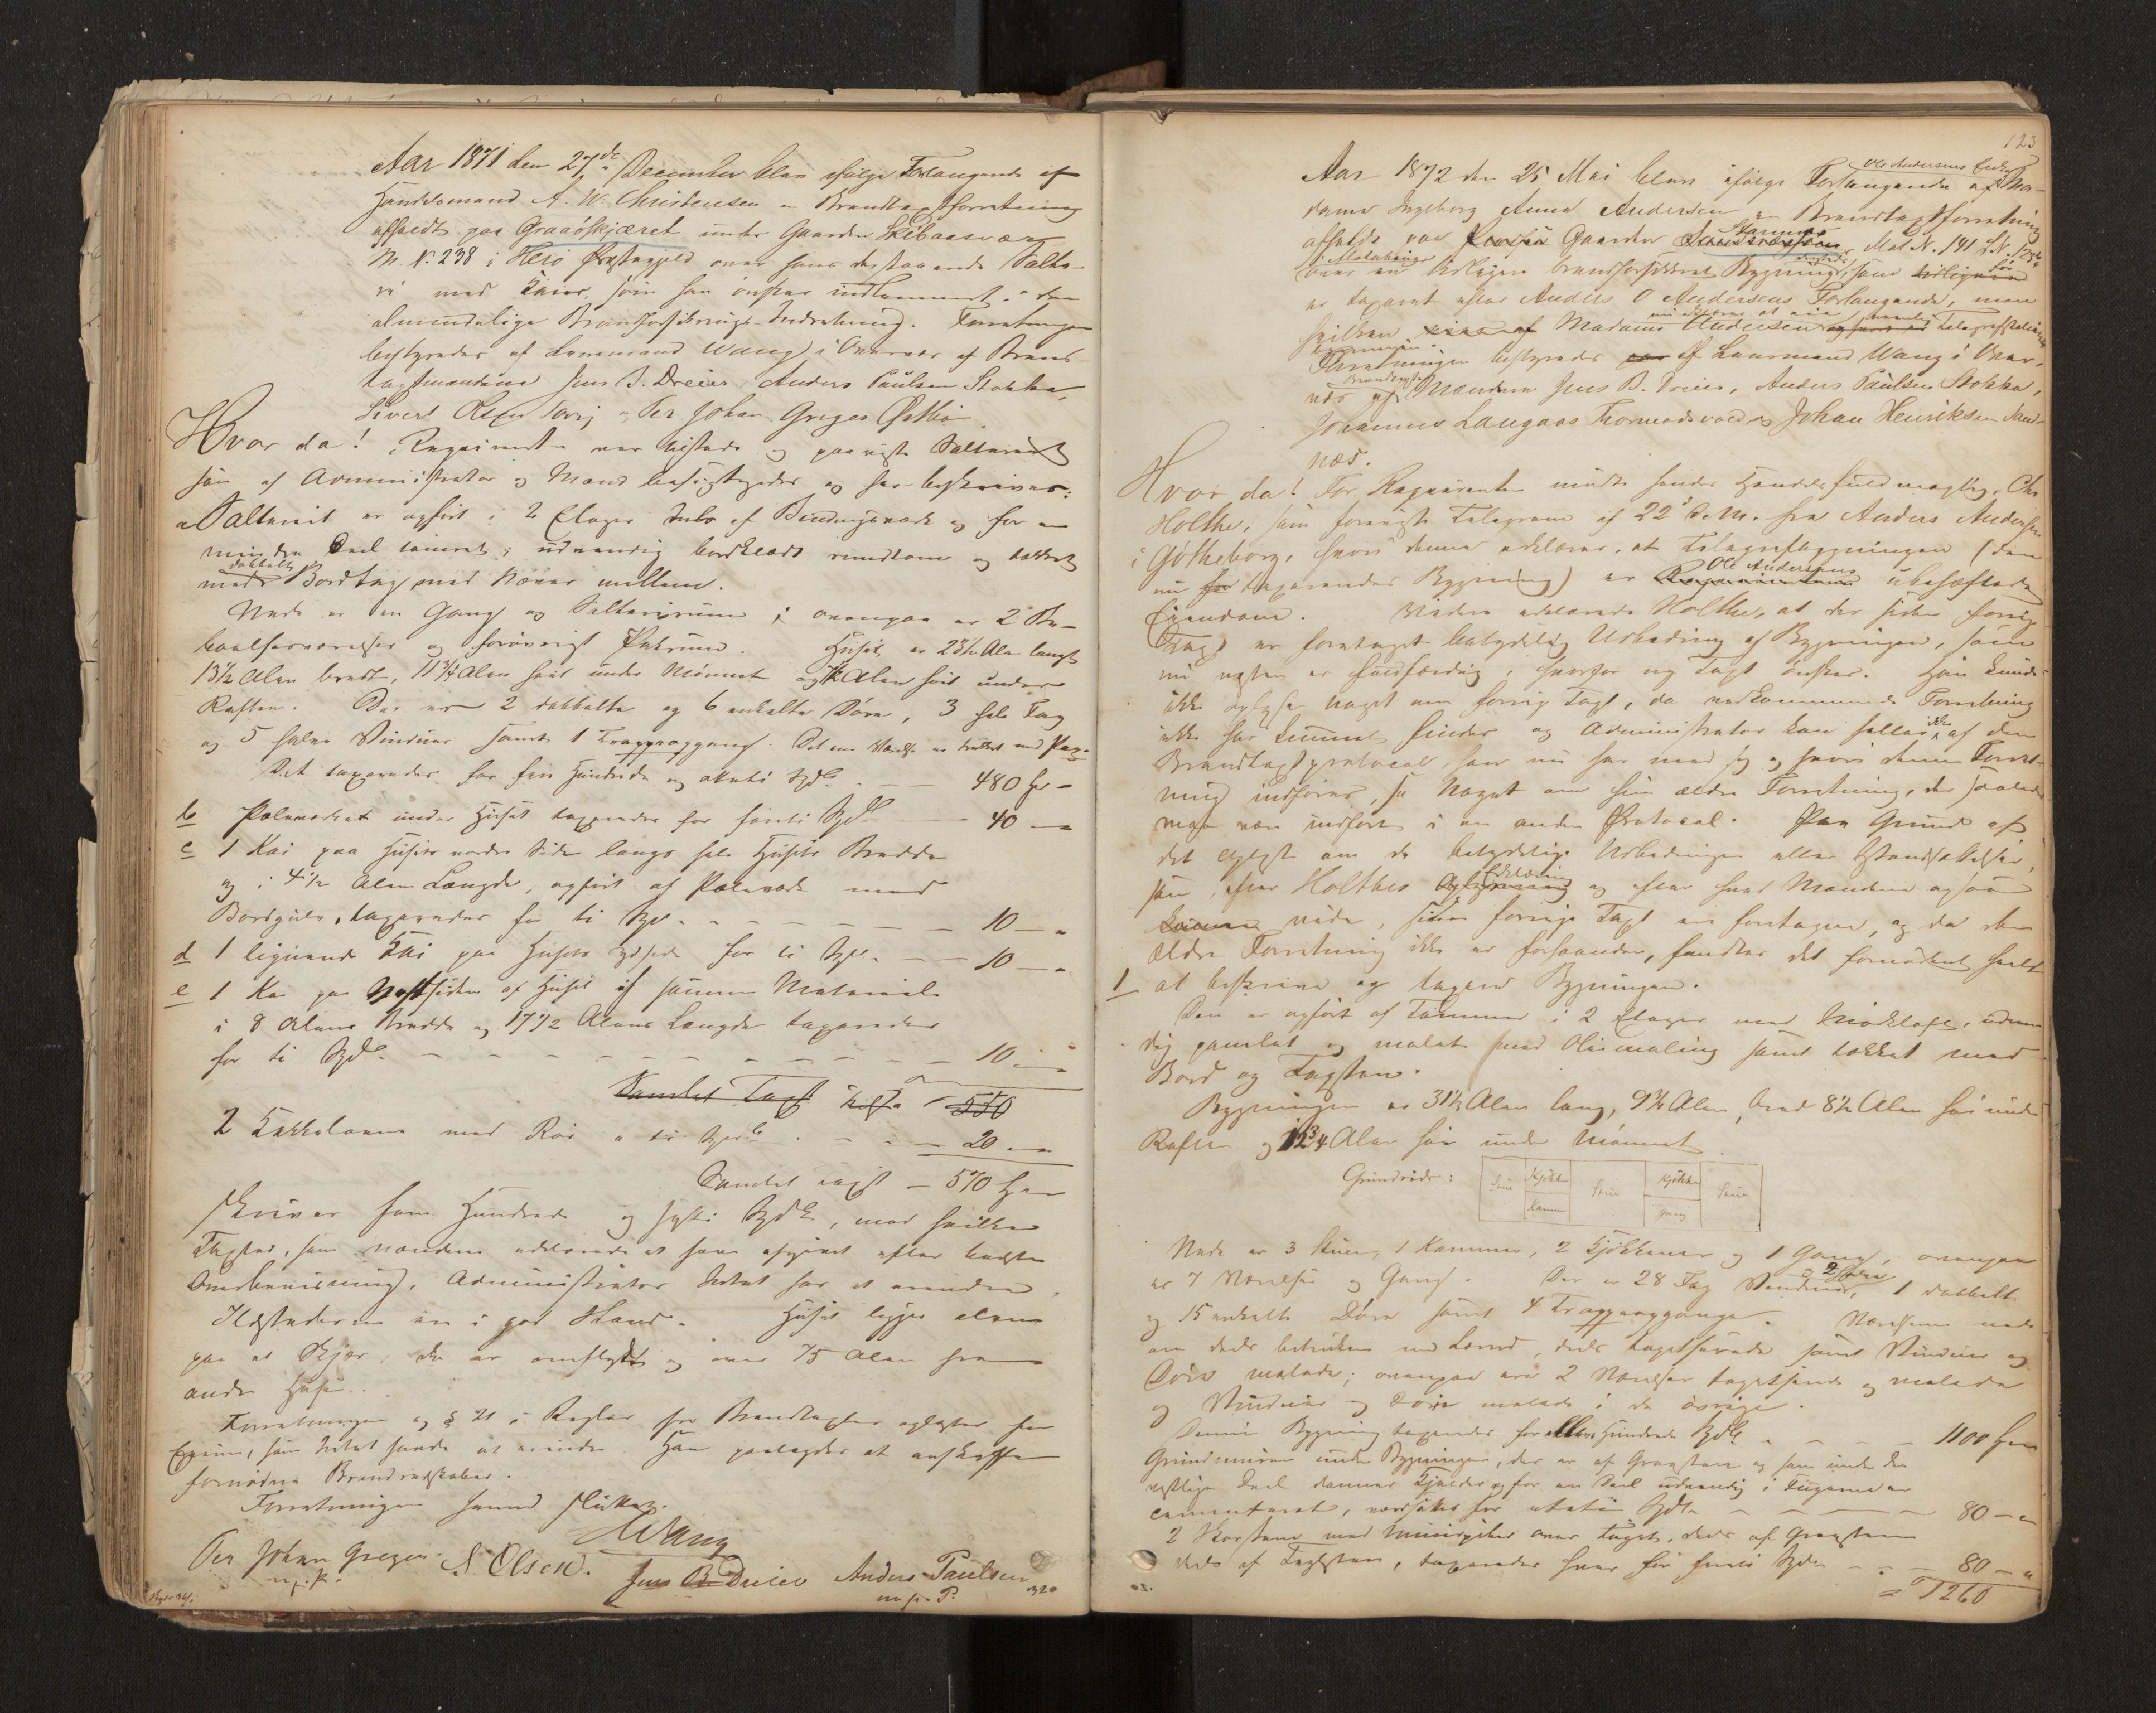 Aar 1871 den 27de December blev ifølge Forlangende af
Handelsmand A. W. Christensen en Brandtaxtforretning
afholdt paa Graaøskjæret under Gaarden Skibaasvær
M. N. 238 i Herø Præstegjeld over hans derstaaende Salte-
ri med Kaier, som han ønsker indlemmet i den
almindelige Brandforsikrings-Indretning. Forretningen
bestyredes af Lensmand Wang i Overvær af Brand-
taxtmændene Jens B. Dreier, Anders Paulsen Stokka,
Sivert Olsen og Per Johan Greger
Hvor da! Requirenten var tilstede og paaviste Salteriet
som af Administrator og Mænd besigtigedes og her beskrives:
a Salteriet er opført i 2 Etager dels af Bindingsværk og for en
mindre Deel tømret; udvendig bordklædt rundtom og tækket
med dobbelt Bordtag med Næver mellem.
Nede er en Gang og Salterirum; ovenpaa er 2 Be-
boelsesværelser og forøvrigt Pakrum. Huset er 23½ Alen langt
13½ Alen bredt, 11¾ Alen høit under Mønnet og Alen høit under
Raften. Der er 2 dobbelte og 6 enkelte Døre, 3 hele Fag
og 5 halve Vinduer samt 1 Trappeopgang. Det ene Værelse er
Det taxeredes for fire Hundrede og otteti Spd. — 480 Spd -
b Pæleværket under Huset taxeredes for forti Spd — 40 — "
c 1 Kai paa Husets nordre Side langs hele Husets Bredde
og i 4½ Alen Længde, opført af Pæleværk med
Bordgulv, taxeredes for ti Spd. — 10 — "
d 1 lignende Kai paa Husets Sydside for ti Spd. — 10 — "
e 1 Kai paa Vestsiden af Huset af samme Materiale
i 8 Alens Bredde og 17½ Alens Længde taxeredes
for ti Spd. — 10 — "
Samlet Taxt 550
2 Kakkelovne med Rør a ti Spd. — 20 — "
Samlet Taxt — 570 Spd
skriver fem Hundrede og sytti Spd, med hvilken
Taxt, som Mændene erklærede at have afgivet efter bedste
Overbevisning, Administrator Intet har at erindre.
Ildstederne ere i god Stand. Huset ligger alene
paa et Skjær, der er omflydt og over 75 Alen fra
andre Huse.
Forretningen og § 21 i Regler for Brandtaxter oplæstes for
Eieren, som Intet havde at erindre. Han paalagdes at anskaffe
fornødne Brandredskaber.
Forretningen hermed sluttet.
Wang
Per Johan Greger S. Olsen. Jens B. Dreier Anders Paulsen
m. p. P. m. p. P.
123
Aar 1872 den 25 Mai blev ifølge Forlangende af Ole Andersens Enke Ma-
dame Ingeborg Anna Andersen en Brandtaxtforretning
afholdt paa Gaarden Mat N. 141 LN.
over en tidligere brandforsikkret Bygning, som
er taxeret efter Anders O Andersens Forlangende, men
hvilken Madame Andersen Telegrafstations
Forretningen bestyredes af Lensmand Wang i Over-
vær af Brandtaxt Mændene Jens B. Dreier, Anders Paulsen Stokka,
Johannes Langaas Thormodsvold og Johan Henriksen Sand-
næs.
Hvor da! For Requirenten mødte hendes Handelsfuldmægtig, Chr
Holthe, som foreviste Telegram af 22 d. M. fra Anders Andersen
i Gøtheborg, hvori denne erklærer, at Telegrafbygningen (den
nu taxerendes Bygning) er Ole Andersens ubehæftede
Eiendom. Videre erklærede Holthe, at der siden forrige
Taxt er foretaget betydelig Udbedring af Bygningen, som
nu næsten er fuldfærdig, hvorfor ny Taxt ønskes. Han kunde
ikke oplyse noget om forrige Taxt, da vedkommende Forretning
ikke har kunnet findes og Administrator kan heller ikke af den
Brandtaxtprotocol, som nu har med sig og hvori denne Forret-
ning indføres, se Noget om hin ældre Forretning, der saaledes
maa være indført i en anden Protocol. Paa Grund af
det oplyste om de betydelige Udbedringer eller Istandsættelser,
som, efter Holthes Erklæring og efter hvad Mændene ogsaa
vide, siden forrige Taxt ere foretagne, og da den
ældre Forretning ikke er forhaanden, fandtes det fornødent heelt
1 at beskrive og taxere Bygningen.
Den er opført af Tømmer i 2 Etager med Mørkloft, udven-
dig panelet og malet med Oliemaling samt tækket med
Bord og Tagsten.
Bygningen er 31½ Alen lang, 9½ Alen bred 8½ Alen høi under
Raften og 12¾ Alen høi under Mønnet.
Grundrids: Stue Kjøkken Kammer Stue Kjøkken Gang Stue
Nede er 3 Stuer, 1 Kammer, 2 Kjøkkener og 1 Gang, ovenpaa
er 7 Værelser og Gang. Der er 28 Fag Vinduer, 1 dobbelt
og 15 enkelte Døre samt 4 Trappeopgange. Værelserne nede
ere dels betrukne med Lærred, dels tapetserede samt Vinduer og
Døre malede; ovenpaa ere 2 Værelser tapetserede og malede
og Vinduer og Døre malede i de øvrige.
Denne Bygning taxeredes for elleve Hundrede Spd. — 1100 Spd
Grundmuren under Bygningen, der er af Graasten og som under den
vestlige Deel danner Kjælder og for en Deel udvendig i Fugerne er
cementeret, værdsattes for otteti Spd. — 80 — "
2 Skorstene med Murpiber over Taget, dels af Graasten
dels af Teglsten, taxeredes hver for forti Spd. — 80 — "
1260